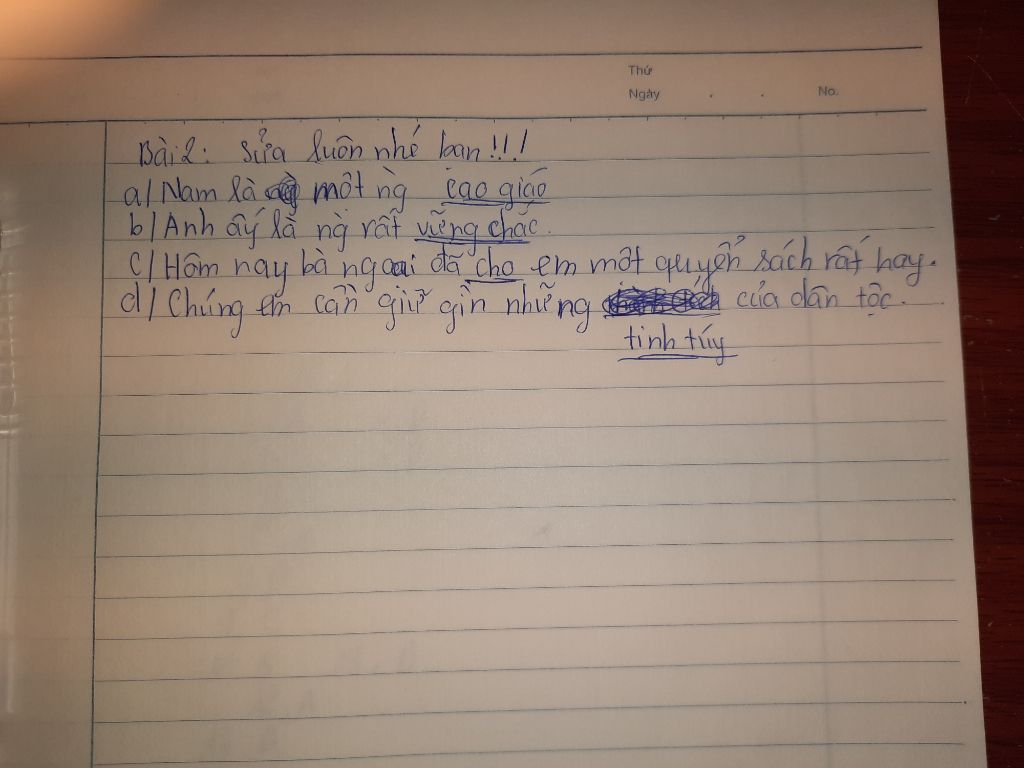 Thứ
Ngày . . No.
Bài 2: Sửa luôn nhé bạn!!!
a/ Nam là một ng cao giáo
b/ Anh ấy là ng rất vững chắc.
c/ Hôm nay bà ngoại đã cho em một quyển sách rất hay.
d/ Chúng em cần giữ gìn những của dân tộc.
tinh túy